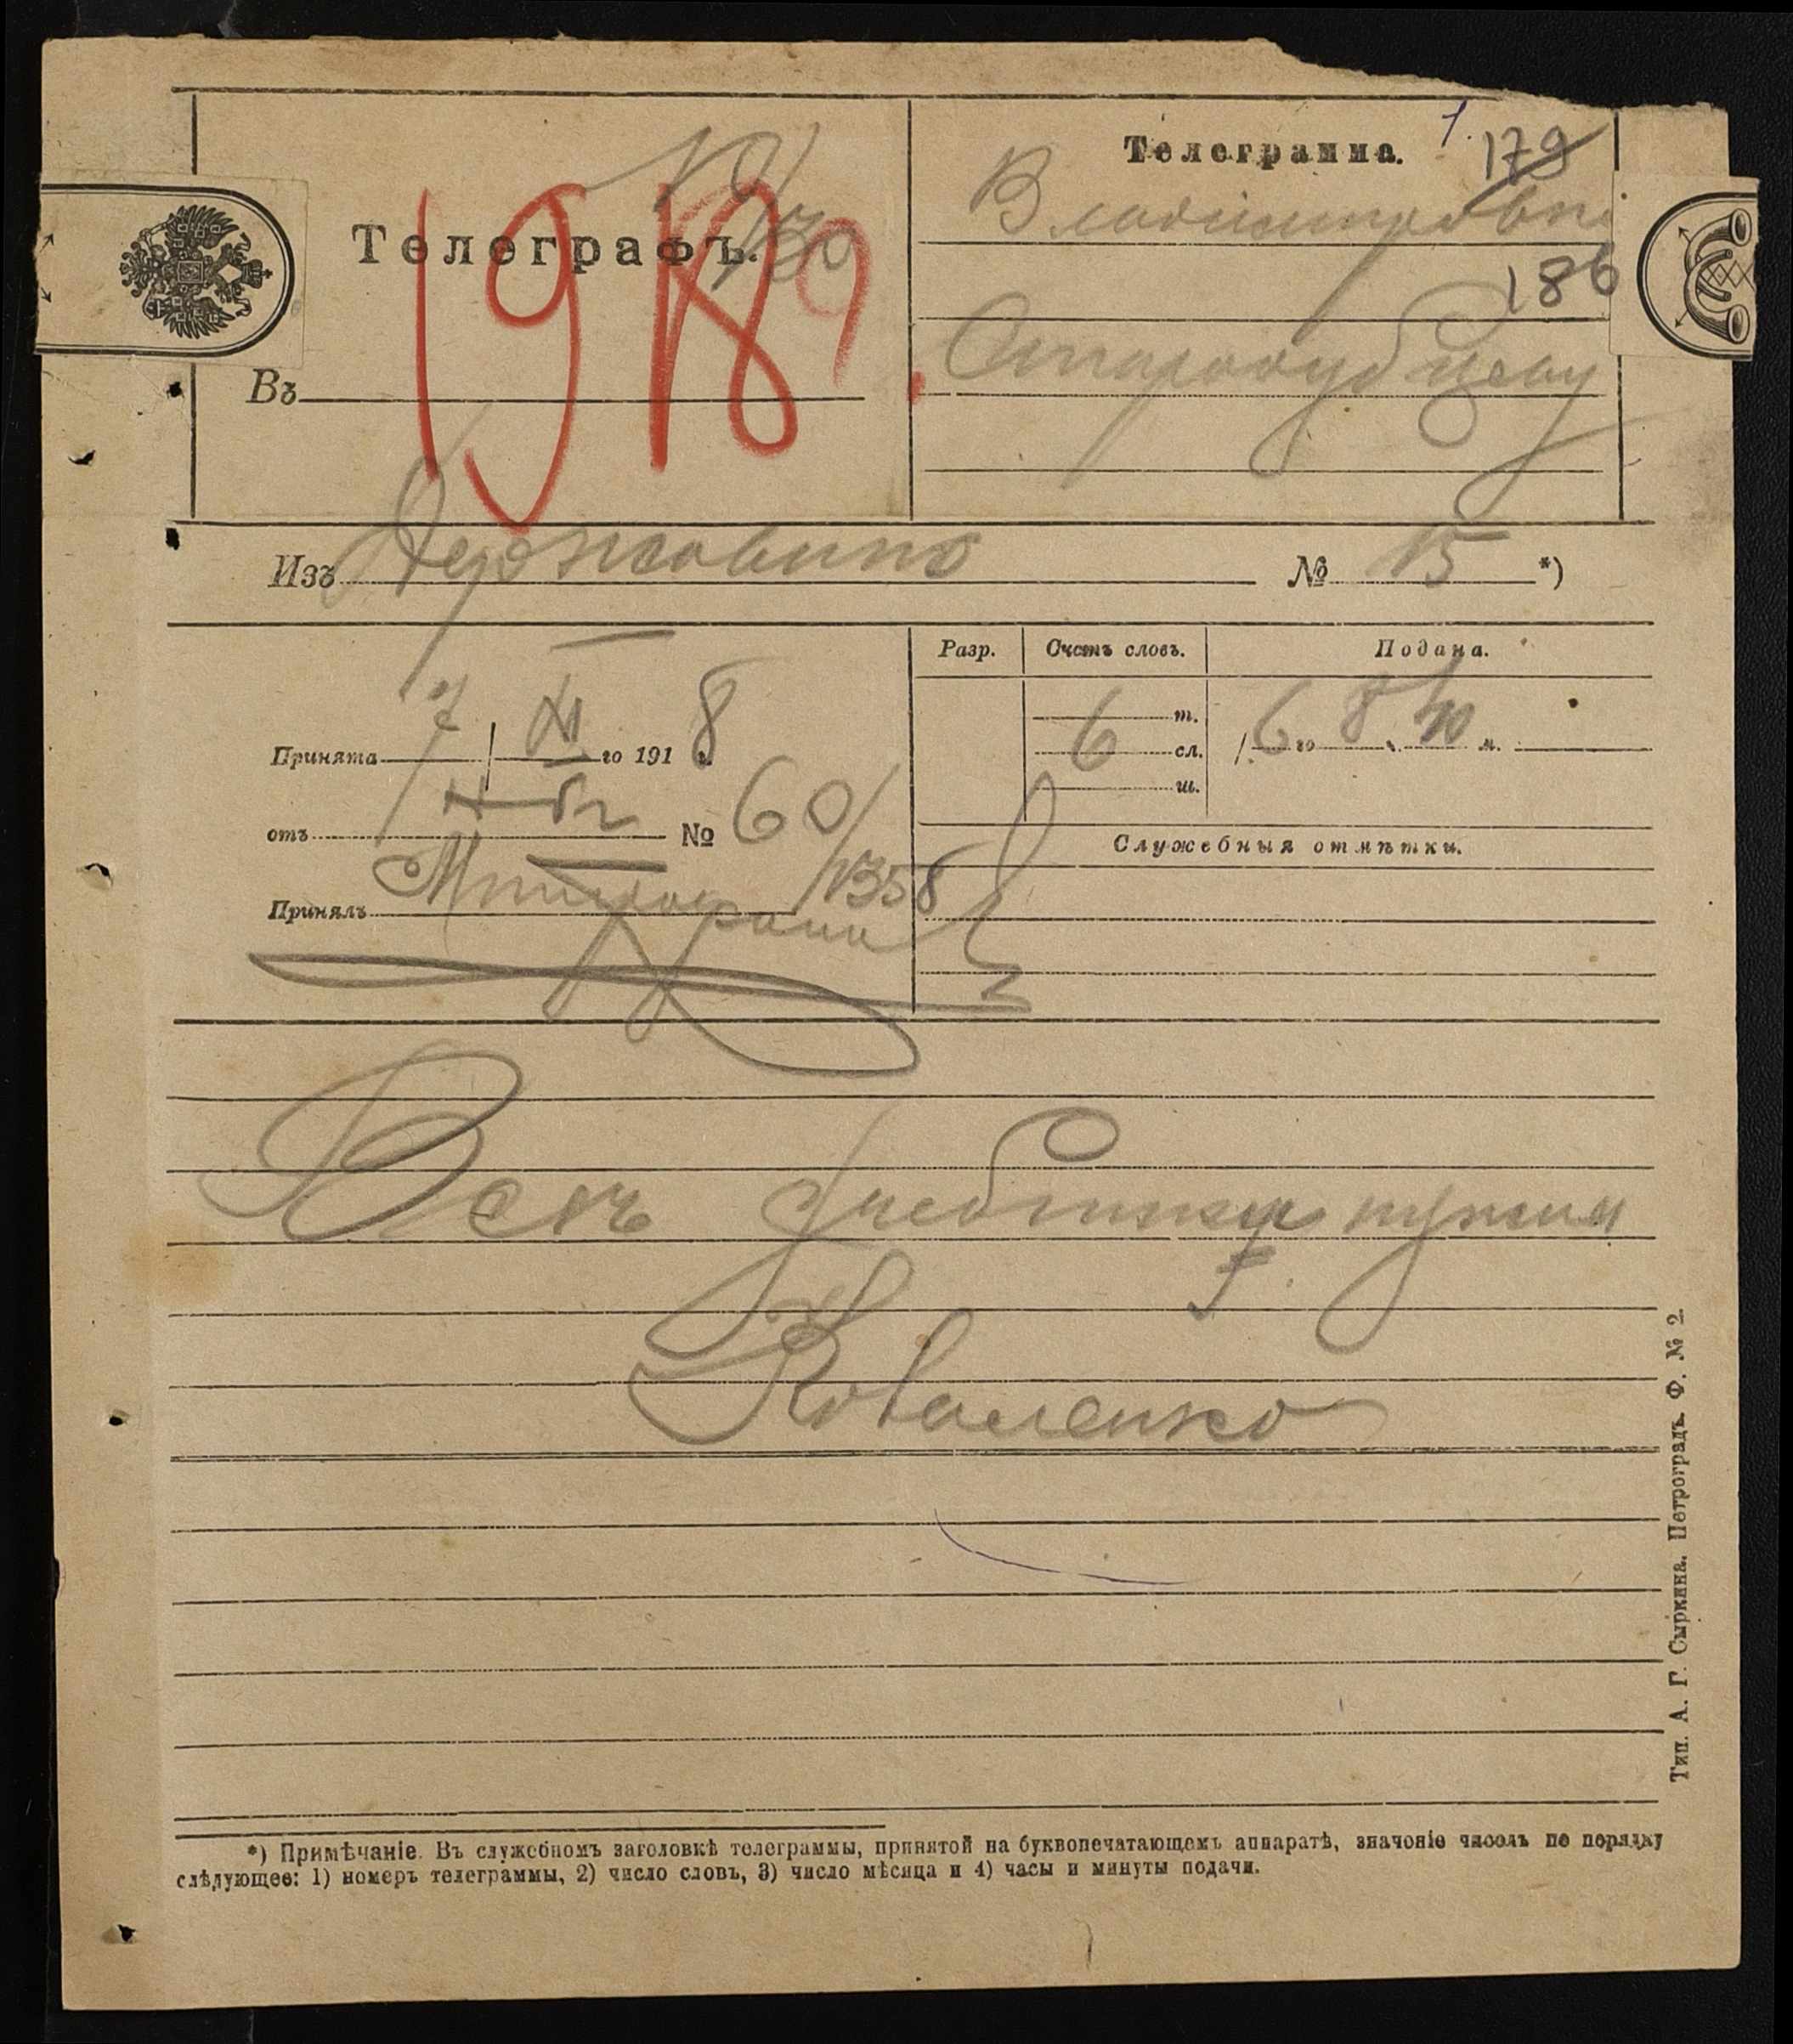 Телеграмма.
1.
179
186
Телеграфъ.
1918
9
Въ
Стародубцеву
Изъ Державино № 15 *)
Разр. Счетъ словъ. Подана.
т.
6 сл. 6 го 8 ч. 40 м.
ш.
Принята 7 / XI го 1918 г.
отъ № 60/1358
Служебныя отмѣтки.
Принялъ
Всѣ учебники нужны
Коваленко
*) Примѣчаніе. Въ служебномъ заголовкѣ телеграммы, принятой на буквопечатающемъ аппаратѣ, значеніе чиселъ по порядку
слѣдующее: 1) номеръ телеграммы, 2) число словъ, 3) число мѣсяца и 4) часы и минуты подачи.
Тип. А. Г. Сыркина. Петроградъ. Ф. № 2.